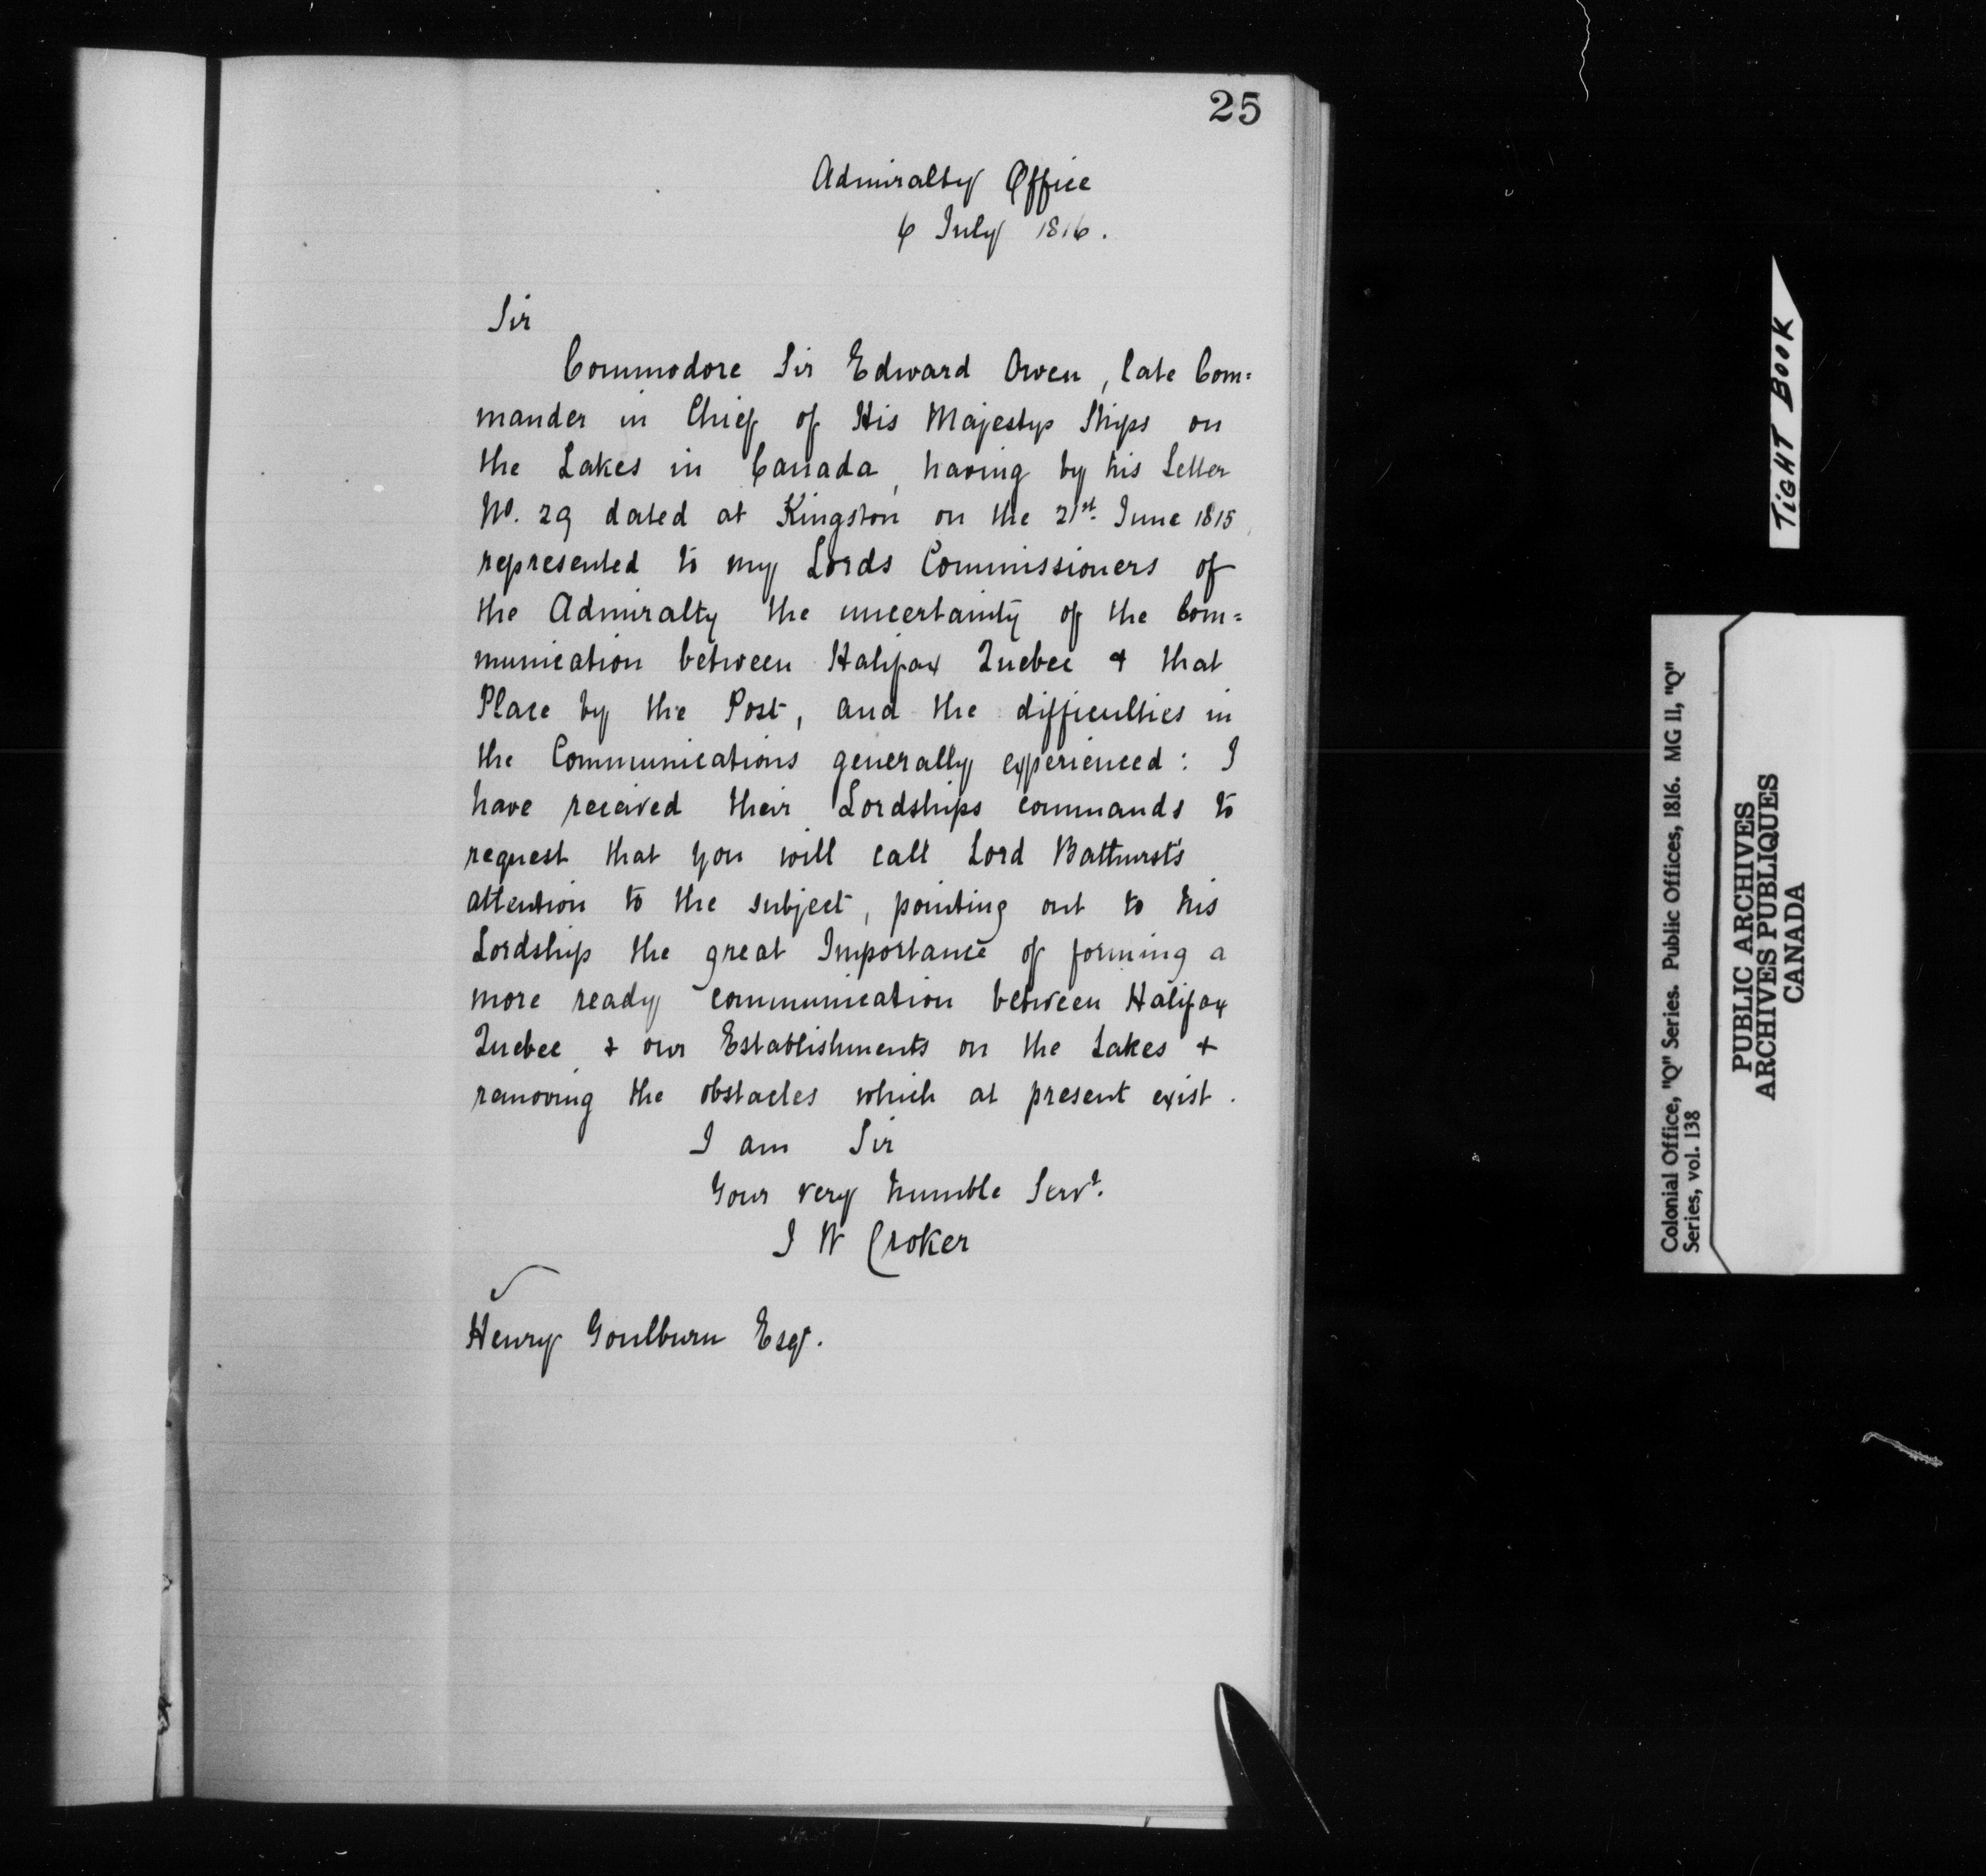 25
Admiralty Office
6 July 1816.
Sir
Commodore Sir Edward Owen, late Com=
mander in Chief of His Majestys Ships on
the Lakes in Canada, having by his Letter
No. 29 dated at Kingston on the 21st June 1815
represented to my Lords Commissioners of
the Admiralty the uncertainty of the Com=
munication between Halifax Quebec & that
Place by the Post, and the difficulties in
the Communications generally experienced: I
have received their Lordships commands to
request that you will call Lord Bathursts
attention to the subject, pointing out to his
Lordship the great Importance of forming a
more ready communication between Halifax
Quebec & our Establishments on the Lakes &
removing the obstacles which at present exist.
I am Sir
Your very humble Servt.
J W Croker
Henry Goulburn Esqr.
TIGHT BOOK
Colonial Office, "Q" Series. Public Offices, 1816. MG 11, "Q"
Series, vol. 138
PUBLIC ARCHIVES
ARCHIVES PUBLIQUES
CANADA